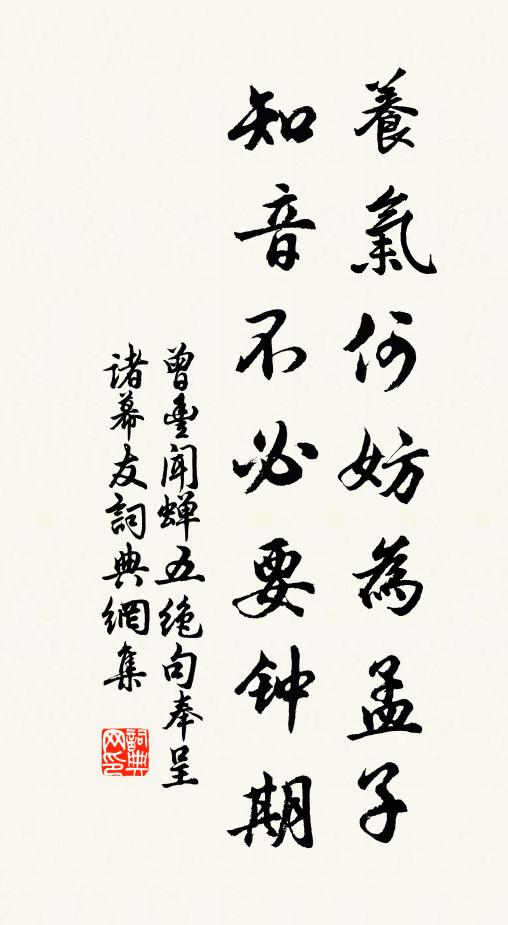 養氣何妨為孟子
知音不必要钟期
曾豊闻蝉五绝句奉呈
诸幕友詞典網集
詞典
网印